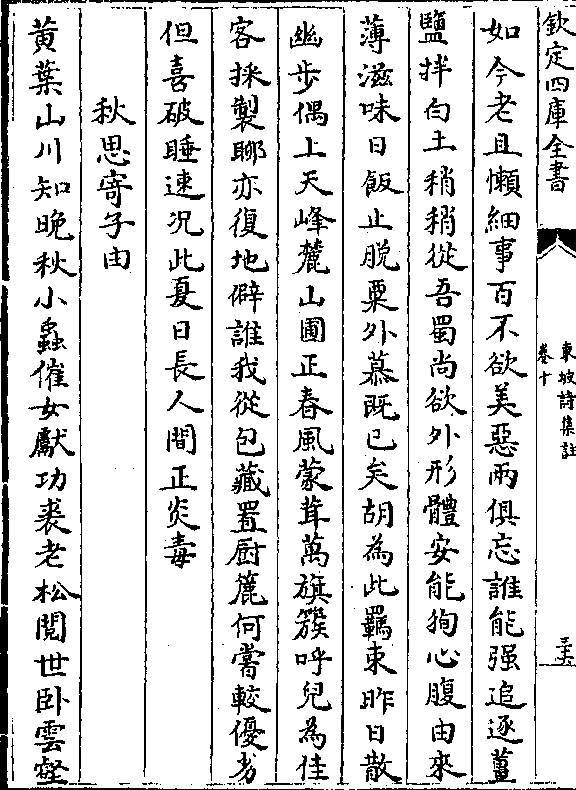 欽定四庫全書
東坡詩集註
卷十
三六
如今老且懶細事百不欲美惡兩俱忘誰能强追逐薑
鹽拌白土稍稍從吾蜀尚欲外形體安能徇心腹由來
薄滋味日飯止脫粟外慕既已矣胡為此羈束昨日散
幽步偶上天峰麓山圃正春風蒙茸萬旗簇呼兒為佳
客採製聊亦復地僻誰我從包藏置厨簏何嘗較優劣
但喜破睡速况此夏日長人間正炎毒
秋思寄子由
黄葉山川知晚秋小蟲催女獻功裘老松閱世卧雲壑